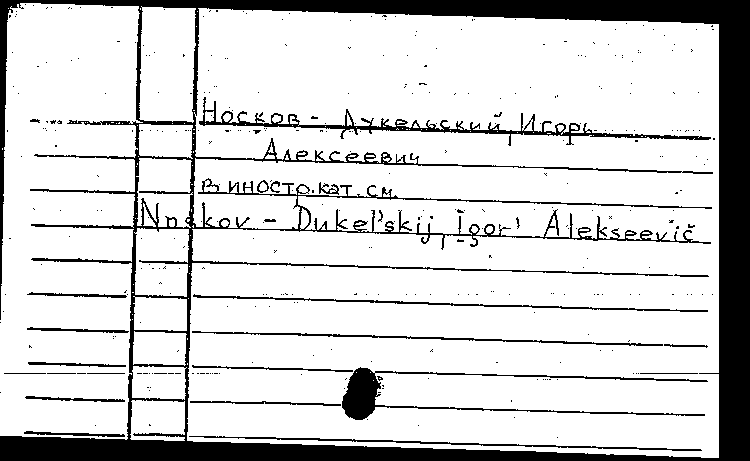 Носков - Дукельский, Игорь
Алексеевич
в иностр. кат. см.
Noskov - Dukel'skij, Igor' Alekseevič